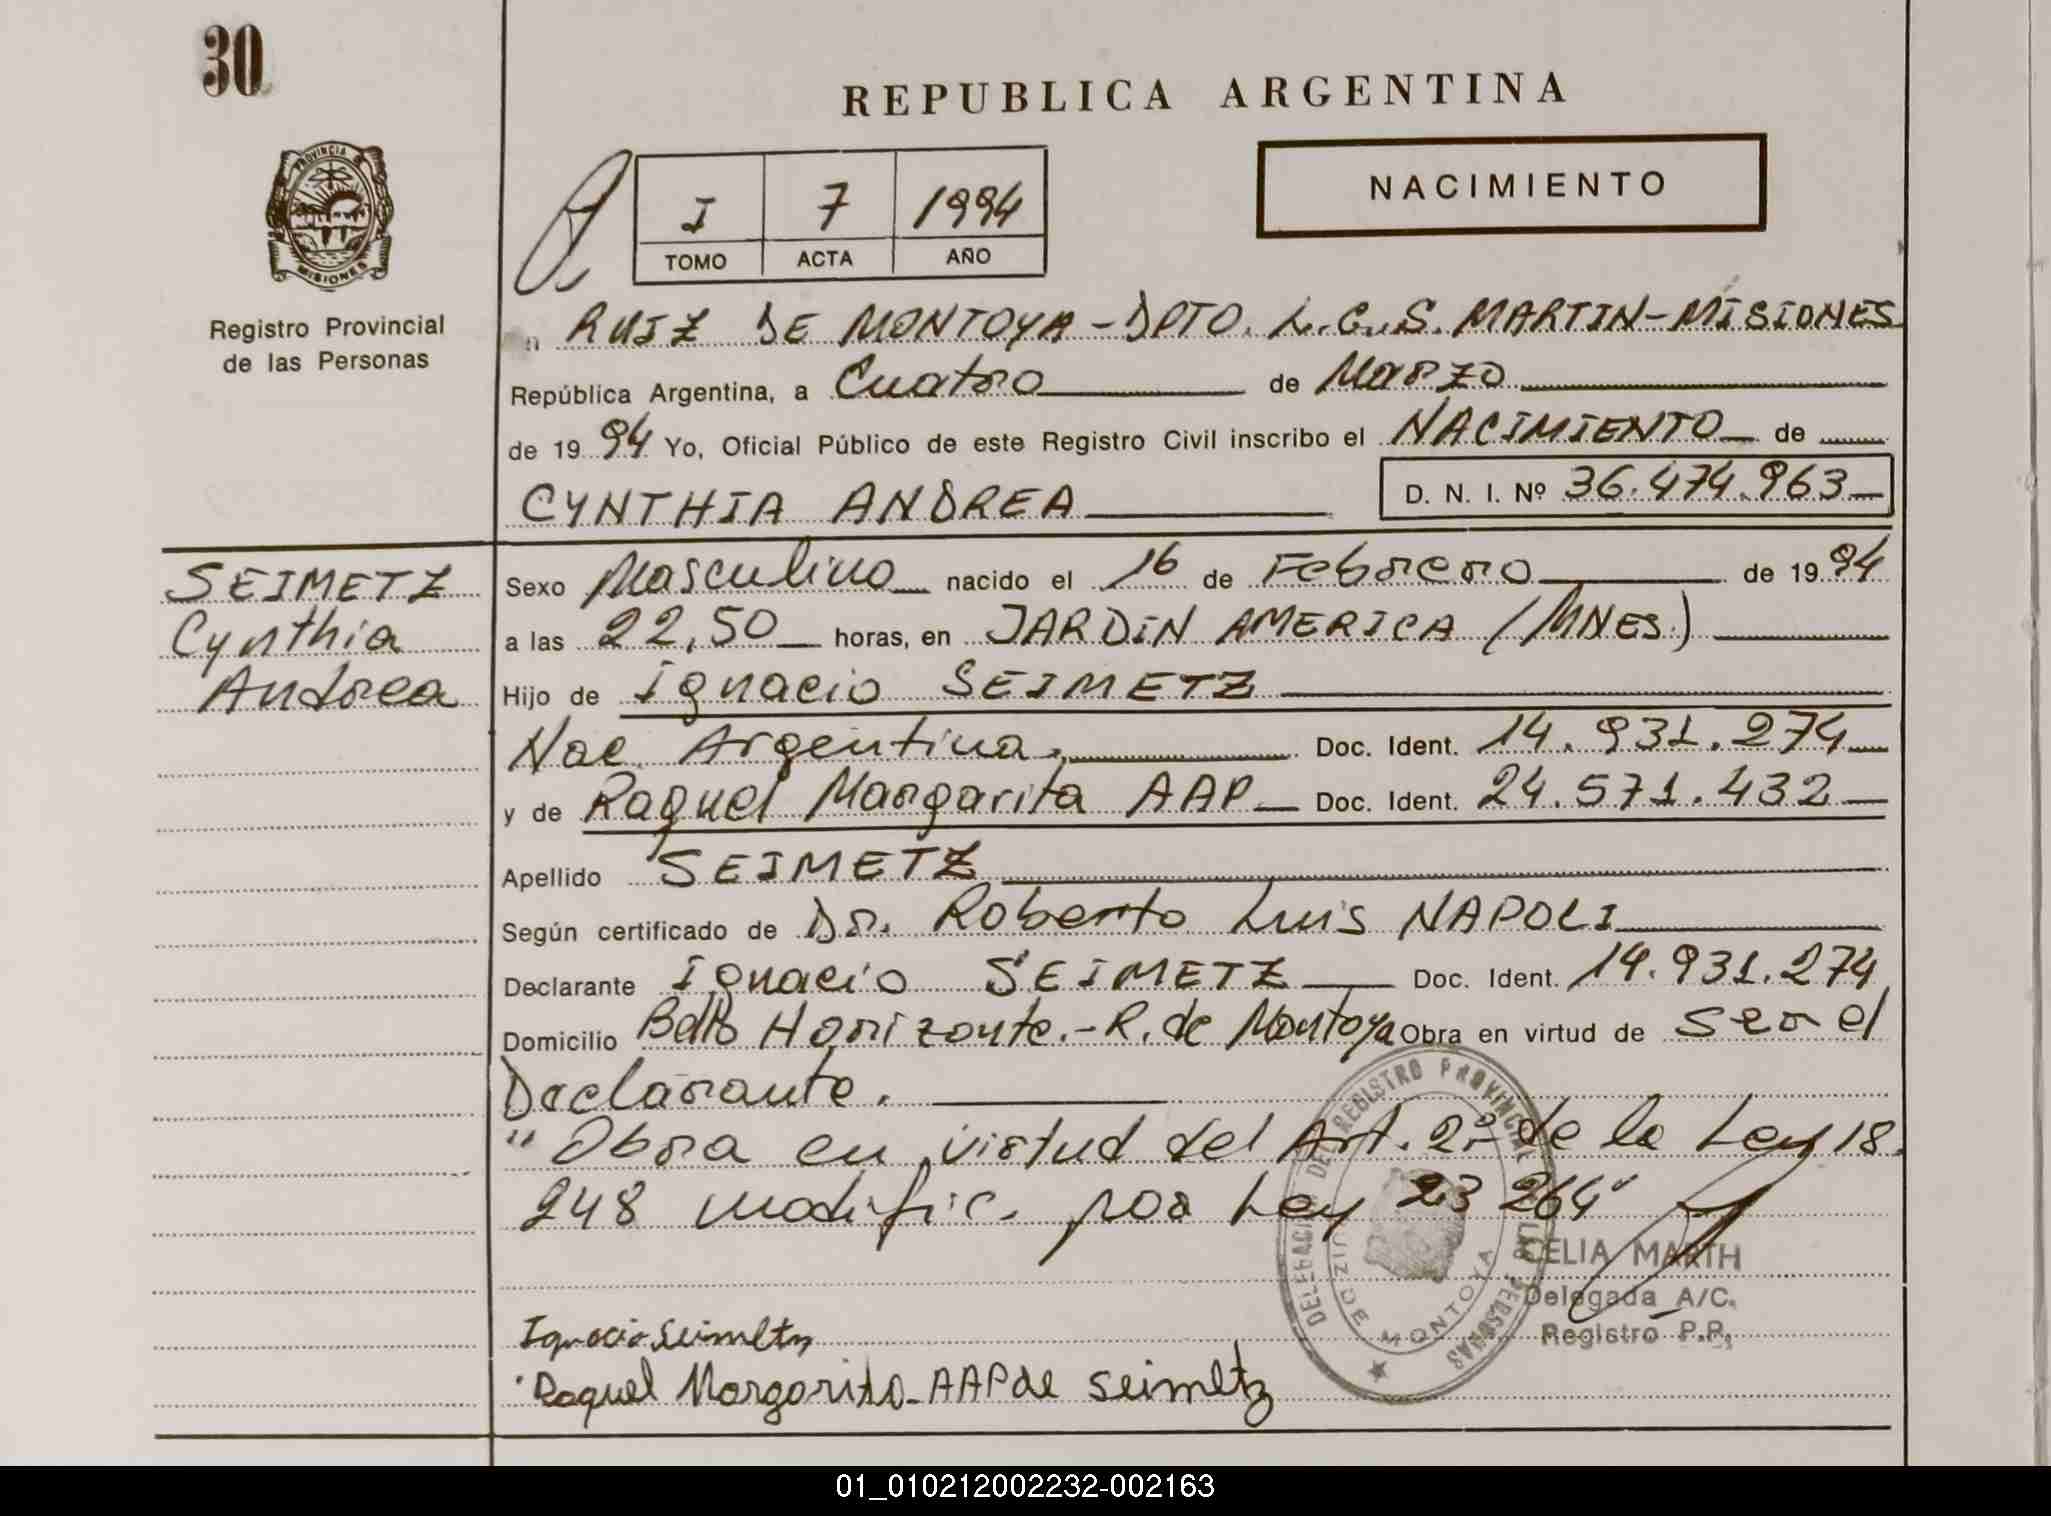 30
REPUBLICA ARGENTINA
PROVINCIA DE
MISIONES
Registro Provincial
de las Personas
I 7 1994
TOMO ACTA AÑO
NACIMIENTO
RUIZ DE MONTOYA - DPTO. L.G.S. MARTIN - MISIONES
República Argentina, a Cuatro de Marzo
de 1994 Yo, Oficial Público de este Registro Civil inscribo el NACIMIENTO de
CYNTHIA ANDREA D. N. I. Nº 36.474.963
SEIMETZ
Cynthia
Andrea
Sexo Masculino nacido el 16 de Febrero de 1994
a las 22,50 horas, en JARDIN AMERICA (MNES.)
Hijo de Ignacio SEIMETZ
Nac. Argentina. Doc. Ident. 14.931.274
y de Raquel Margarita AAP Doc. Ident. 24.571.432
Apellido SEIMETZ
Según certificado de Dr. Roberto Luis NAPOLI
Declarante Ignacio SEIMETZ Doc. Ident. 14.931.274
Domicilio Bello Horizonte.- R. de Montoya Obra en virtud de ser el
Declarante.
"Obra en virtud del Art. 2º de la Ley 18.
248 modific. por Ley 23264"
DELEGACION DEL REGISTRO PROVINCIAL DE LAS PERSONAS
RUIZ DE MONTOYA
CELIA MARTH
Delegada A/C.
Registro P.P.
Ignacio Seimetz
Raquel Margarita AAP de Seimetz
01_010212002232-002163